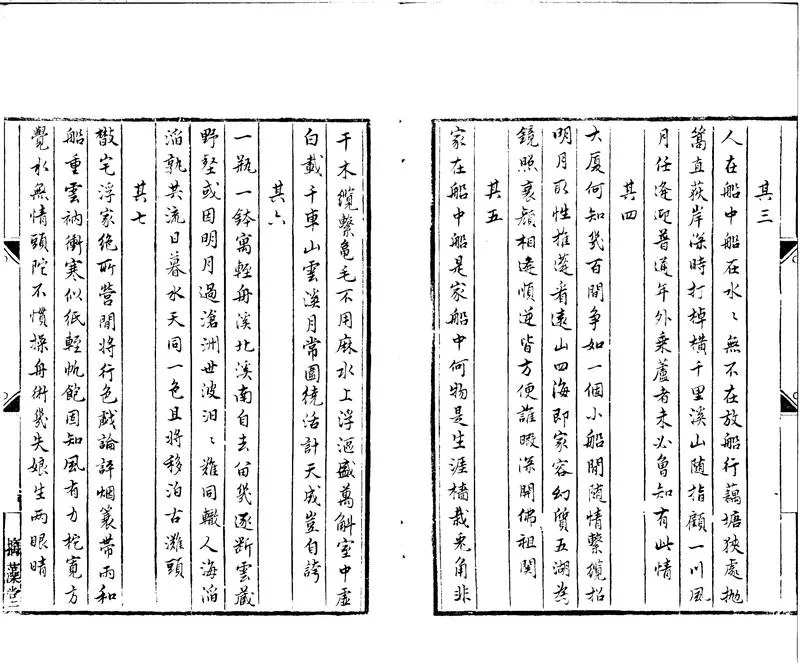 其三
人在船中船在水〻無不在放船行藕塘狹處拋
篙直荻岸深時打棹橫千里溪山隨指顧一川風
月任逢迎普通年外乗蘆者未必曾知有此情
其四
大厦何知幾百間爭如一個小船閒隨情繫纜招
明月取性推篷看遠山四海即家容幻質五湖為
鏡照衰顏相逢順逆皆方便誰暇深開佛祖関
其五
家在船中船是家船中何物是生涯檣栽兎角非
干木纜繫龜毛不用麻水上浮漚盛萬斛室中虛
白載千車山雲溪月常圍繞活計天成豈自誇
其六
一瓶一鉢寓輕舟溪北溪南自去留幾逐斷雲藏
野壑或因明月過滄洲世波汨〻難同轍人海滔
滔孰共流日暮水天同一色且將移泊古灘頭
其七
散宅浮家絕所營閒將行色戲論評烟蓑帶雨和
船重雲衲衝寒似紙輕帆飽固知風有力柁寬方
覺水無情頭陀不慣操舟術幾失娘生兩眼睛
摛藻堂